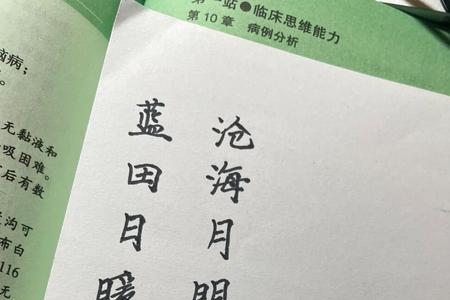 第一站●临床思维能力
第10章 病例分析
脑病;
无黏液和
吸困难。
后有数
沟可
布白
116
无
沧海月明
蓝田日暖